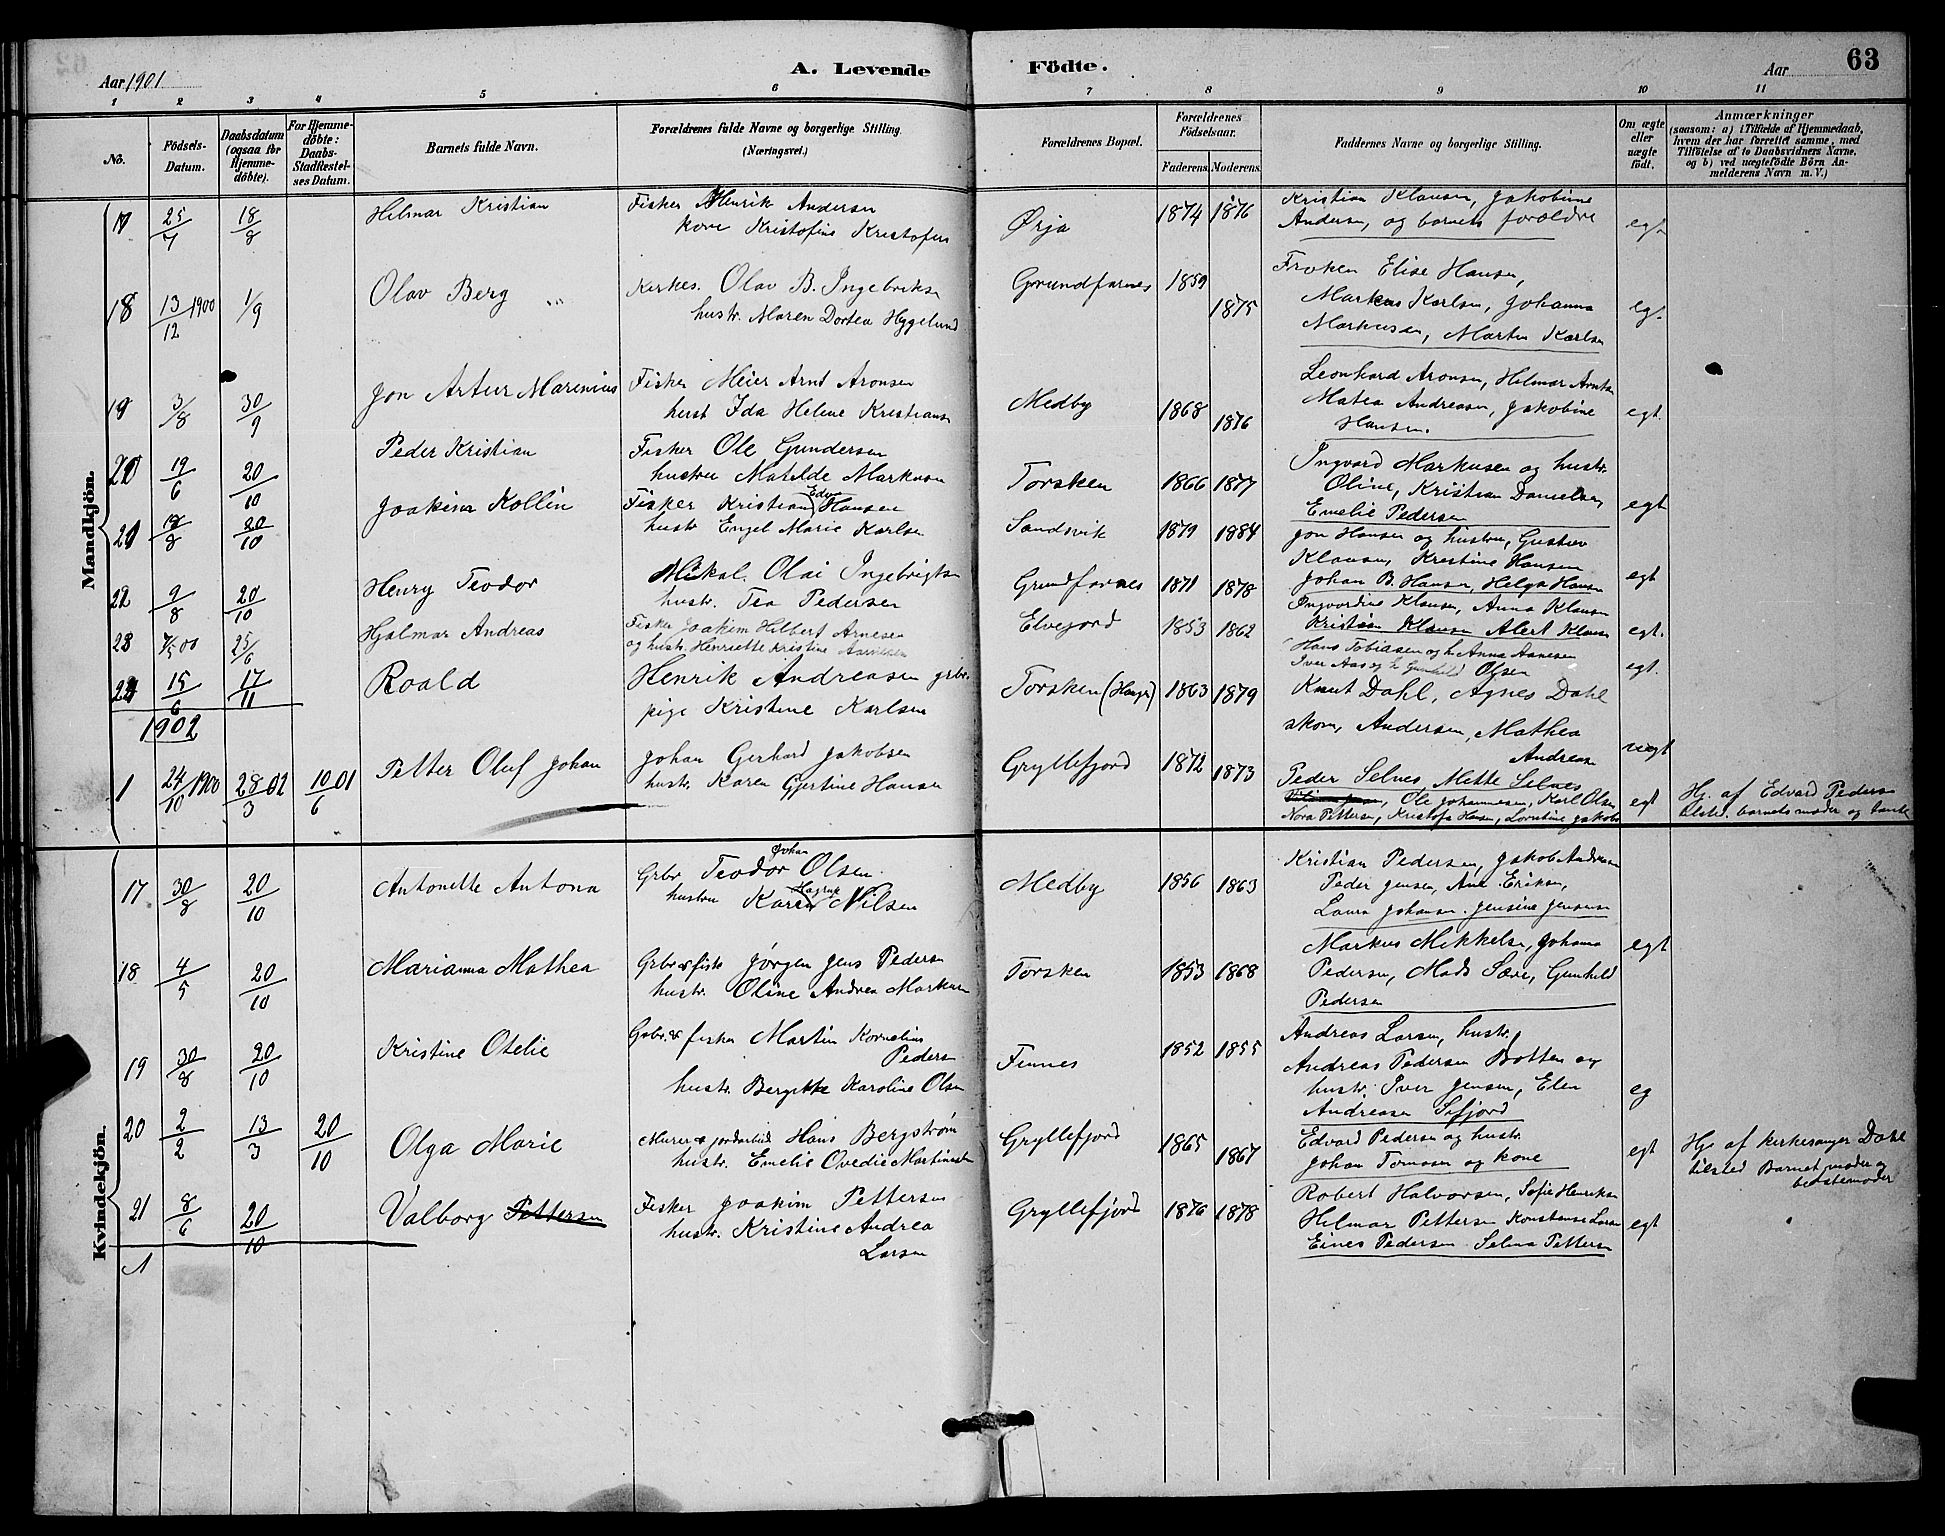 63
Aar 1901
A. Levende Födte.
Aar
1 2 3 4 5 6 7 8 9 10 11
No.
Födsels-Datum.
Daabsdatum (ogsaa for Hjemme-döbte).
For Hjemme-döbte: Daabs-Stadfæstel-ses Datum.
Barnets fulde Navn.
Forældrenes fulde Navne og borgerlige Stilling. (Næringsvei.)
Forældrenes Bopæl.
Forældrenes Födselsaar.
Faderens. Moderens.
Faddernes Navne og borgerlige Stilling.
Om ægte eller uægte født.
Anmærkninger
(saasom: a) i Tilfælde af Hjemmedaab,
hvem der har forrettet samme, med
Tilföielse af to Daabsvidners Navne,
og b) ved uægtefödte Börn An-
melderens Navn m. V.)
Mandkjön.
17 25/7 18/8 Hilmar Kristian
Fisker Henrik Andersen
kone Kristofine Kristofers
Ørja 1874 1876
Kristian Klausen, Jakobine
Andersen, og barnets forældre
egt.
18 13/12 1900 1/9 Olav Berg
Kirkes. Olav B. Ingebriks
hustr. Maren Dortea Hygelund
Grundfarnes 1859 1875
Frøken Elise Hansen,
Markus Karlsen, Johanna
Markusen, Marten Karlsen
egt.
19 3/8 30/9 Jon Artur Marenius
Fisker Meier Arnt Aronsen
hust Ida Helene Kristians
Medby 1868 1876
Leonhard Aronsen, Hilmar Arnts
Matea Andreasen, Jakobine
Hansen.
egt.
20 19/6 20/10 Peder Kristian
Fisker Ole Gundersen
hustru Matilde Markusen
Torsken 1866 1877
Ingvard Markusen og hustr.
Oline, Kristian Danielsen,
Emelie Pedersen
egt
21 18/8 20/10 Joakim Kollin
Fisker Kristian Edv. Hansen
hustr. Engel Marie Karlsen
Sandsvik 1879 1884
Jon Hansen og hustru, Gustav
Klausen, Kristine Hansen
egt
22 9/8 20/10 Henry Teodor
Mikal Olai Ingebrigtsen
hustr. Tea Pedersen
Grundfarnes 1871 1878
Johan B. Hansen, Helga Hansen
Ingvardine Klausen, Anna Klausen
Kristian Klausen Alert Klausen
egt.
23 7/5 00 25/6 Hjalmar Andreas
Fisker Joakim Hilbert Arnesen
og hustr. Henriette Kristine
Elvejord 1853 1862
Hans Tobiasen og h. Anna Aanesen
Iver Aas og h. Gunhild Olsen
egt.
24 15/6 17/11 Roald
Henrik Andreasen grbr.
pige Kristine Karlsen
Torsken 1863 1879
Knut Dahl, Agnes Dahl
skom, Andersen, Mathea
Andreasen
uegt
1902
1 24/10 1900 28/3 02 10/6 01 Petter Oluf Johan
Johan Gerhard Jakobsen
hustr. Karen Gjertine Hansen
Gryllefjord 1872 1873
Peder Selnes, Mette Selnes
Ole Johannesen, Karl Olsen
Nora Pettersen, Kristofa Hansen, Lorntine Jakobs
egt
Hj. af Edvard Peders
tilsted. barnets moder og tante
Kvindekjön.
17 30/8 20/10 Antonette Antona
Grbr Teodor Johan Olsen
hustru Karen Nilsen
Medby 1856 1863
Kristian Pedersen, Jakob Andreasen
Peder Jensen, Ane Eriksen,
Laura Johansen. Jensine Jensen
18 4/5 20/10 Marianna Mathea
Grbr & fisk Jørgen Jens Pedersen
hustr. Oline Andrea Markusen
Torsken 1853 1868
Markus Mikkelsen, Johana
Pedersen, Mads Sære, Gunhild
Pedersen
egt
19 30/8 20/10 Kristine Otelie
Grbr. & fisker Martin Kornelius
Pedersen
hustr. Bergitte Karoline Olsen
Finnes 1852 1855
Andreas Larsen, hustr.
Andreas Pedersen Botten og
hustr. Iver Jensen, Elen
Andreasen Sifjord
eg
20 2/2 13/3 20/10 Olga Marie
Murer & jordarbeid Hans Bergstrøm
hustr. Emelie Ovedie Martinsen
Gryllefjord 1865 1867
Edvard Pedersen og hustr.
Johan Tomasen og kone
egt
Hj. af kirkesanger Dahl
tilsted Barnets moder og
bedstemoder
21 8/6 20/10 Valborg Pettersen
Fisker Joakim Pettersen
hustr. Kristine Andrea
Larsen
Gryllefjord 1876 1878
Robert Halvorsen, Sofie Henriksen
Hilmar Pettersen Konstanse Larsen
Eines Pedersen Selma Pettersen
egt
1